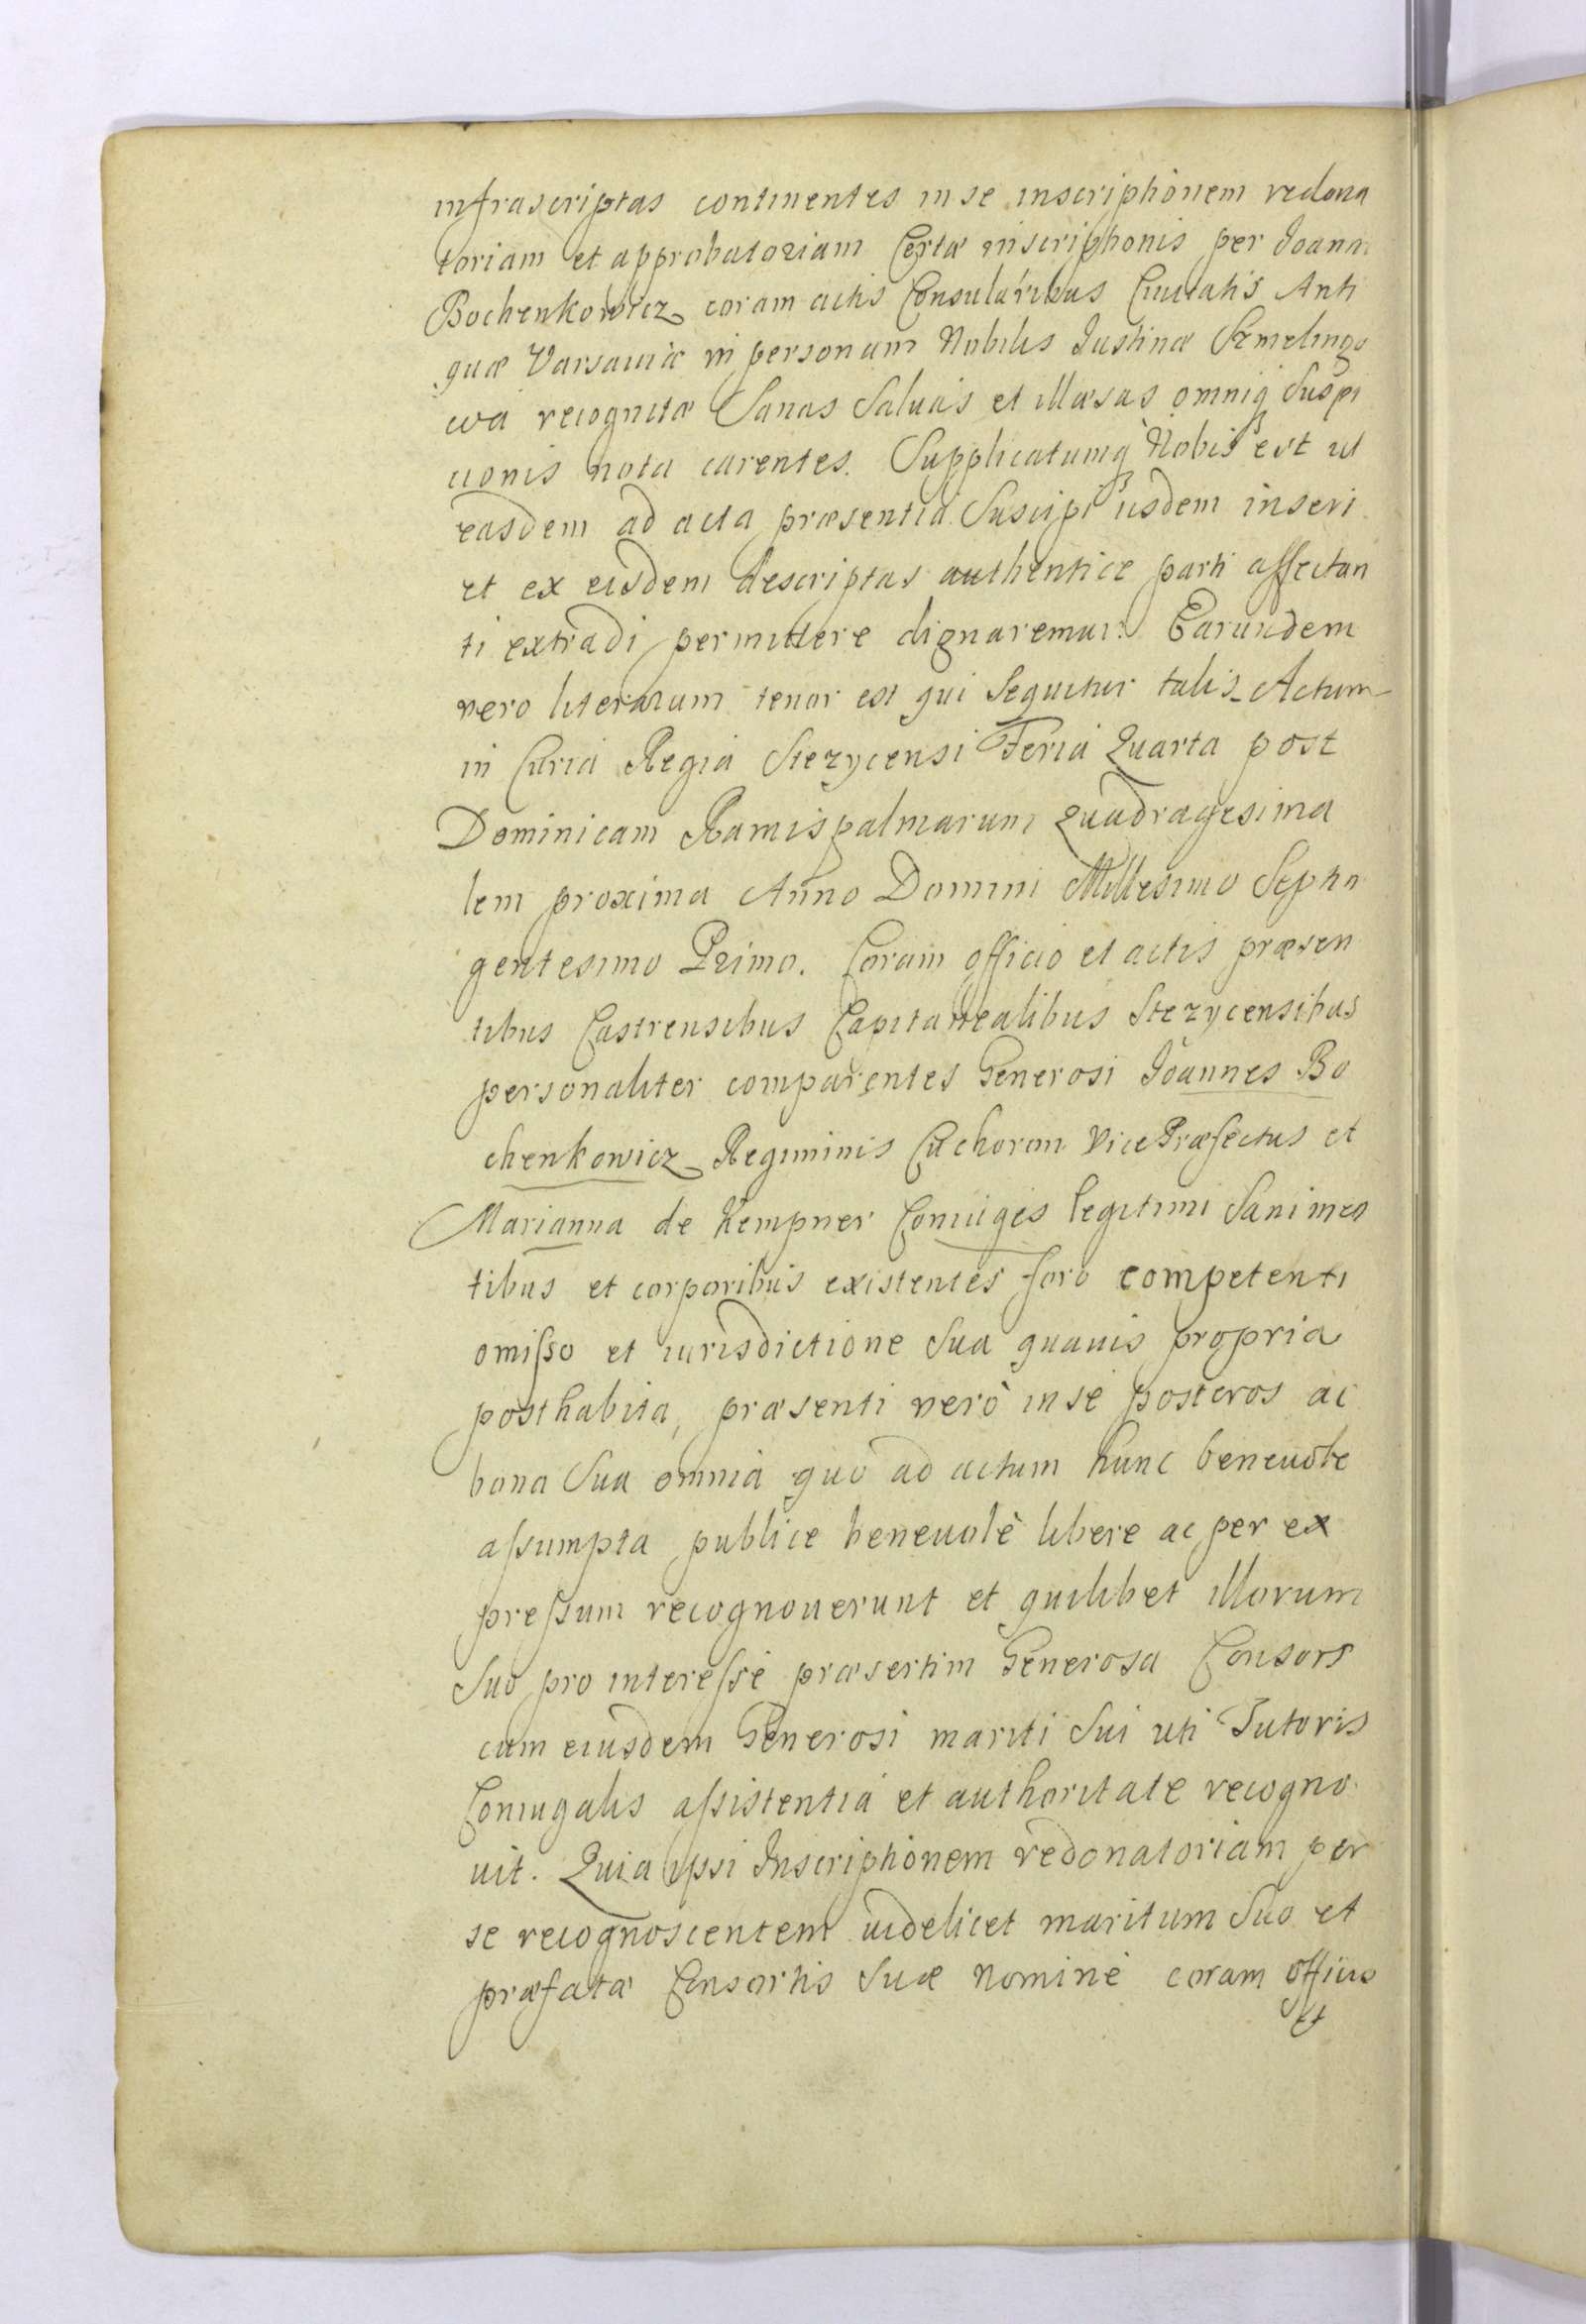 infrascriptas continentes in se inscriptionem redona
toriam et approbatoriam Certæ inscriptionis per Joann
Bochenkowicz coram actis Consularibus Ciuitatis Anti
quæ Varsauiæ in personam Nobilis Justinæ Szmelingo
wa recognitæ Sanas Saluas et illæsas omniq Suspi
cionis nota carentes. Supplicatumq Nobis est ut
easdem ad acta præsentia Suscipi iisdem inseri
et ex eisdem descriptas authentice parti affectan
ti extradi permittere dignaremur. Earundem
vero literarum tenor est qui Sequitur talis. Actum
in Curia Regia Stezycensi Feria Quarta post
Dominicam Ramispalmarum Quadragesima
lem proxima Anno Domini Millesimo Septin
gentesimo Primo. Coram officio et actis præsen
tibus Castrensibus Capitanealibus Stezycensibus
personaliter comparentes Generosi Joannes Bo
chenkowicz Regiminis Cuchoron Vice Præfectus et
Marianna de Kempner Coniuges legitimi Sani men
tibus et corporibus existentes foro competenti
omisso et iurisdictione Sua quauis propria
posthabita, præsenti verò in se posteros ac
bona Sua omnia quo ad actum hunc beneuole
assumpta publice beneuolè libere ac per ex
pressum recognouerunt et quilibet illorum
Suo pro interesse præsertim Generosa Consors
cum eiusdem Generosi mariti Sui uti Tutoris
Coniugalis assistentia et authoritate recogno
uit. Quia ipsi Inscriptionem redonatoriam per
se recognoscentem uidelicet maritum Suo et
præfatæ Consortis Suæ Nomine coram officio
et